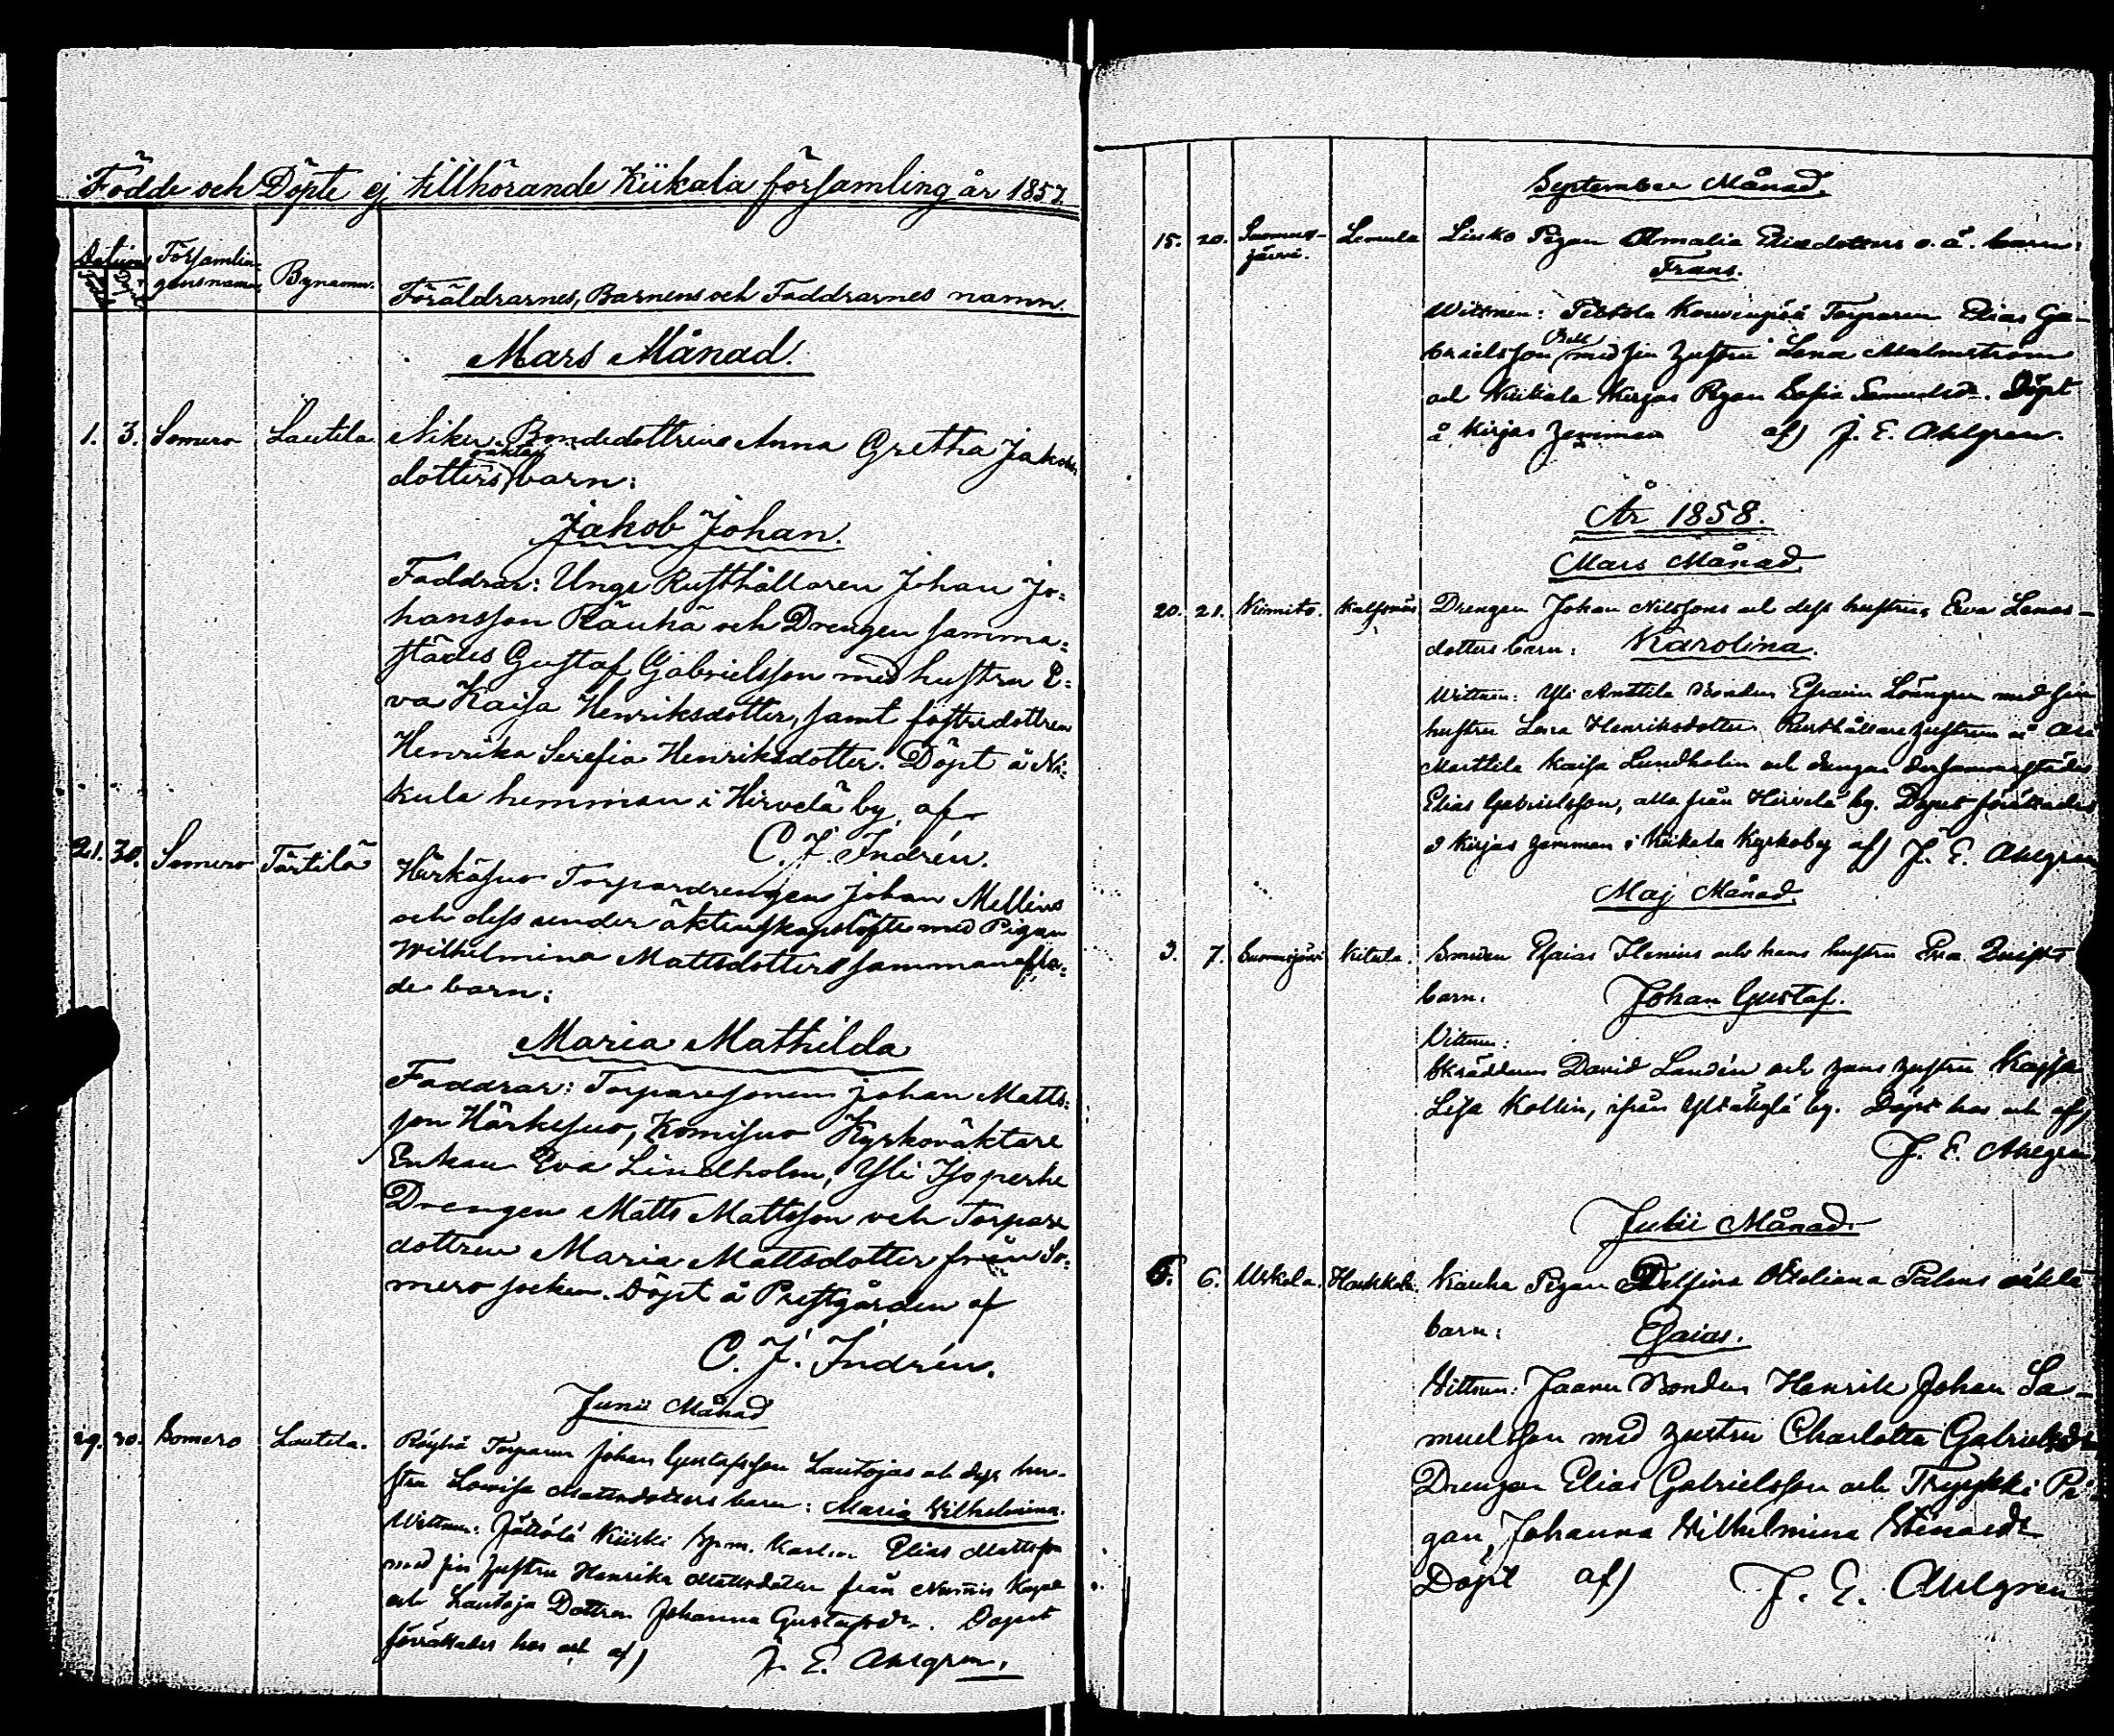 Födde och Döpte ej tillhörande Kiikala församling år 1857.
Datum Församlin=
gens namn. Bynamn. Föräldrarnes, Barnens och Faddrarnes namn.
Född Döpt
Mars Månad.
1. 3. Somero Lautela Niku Bondedottrens Anna Gretha Jakobs
oäkta
dotters barn:
Jakob Johan.
Faddrar: Unge Rusthållaren Johan Jo=
hansson Räuhä och Drengen samma=
städes Gustaf Gabrielsson med hustru E=
va Kaisa Henriksdotter, samt fosterdottren
Henrika Serafia Henriksdotter. Döpt å Ni=
kula hemman i Hirvelä by, af
C. J. Indrén.
21. 30. Somero Tärtilä Härkäsuo Torpardrengen Johan Mellins
och dess under äktenskapslöfte med Pigan
Wilhelmina Mattsdotters sammanafla=
de barn:
Maria Mathilda
Faddrar: Torparesonen Johan Matts=
son Härkesuo, Komisuo Kyrkoväktare
Enkan Eva Lindholm, Yli Isoperhe
Drengen Matts Mattsson och Torpare
dottren Maria Mattsdotter från So=
mero socken. Döpt å Prestgården af
C. J. Indrén.
Junii Månad
29. 30. Somero Lautela. Röyhä Torparen Johan Gustafsson Lautojas och dess hu-
stru Lowisa Mattsdotters barn: Maria Wilhelmina.
Wittnen: Kiiski Elias Mattsson
med sin hustru Henrika Mattsdotter från
och Lautoja Dottren Johanna Gustafsdr. Dopet
förrättades hos och af) J. E. Ahlgren.
September Månad.
15. 20. Suomus-
järvi. Lemula Liuko Pigan Amalia Eliedotters o. ä. barn:
Frans.
Wittnen: Torparen Elias Ga-
brielsson med sin hustru Lena Malmström
och Kiikala Kirjas Pigan Sofia Samuelsdr. Döpt
å Kirjas hemman af) J. E. Ahlgren.
År 1858.
Mars Månad
20. 21. Kimito. Kalfsnäs Drengen Johan Nilssons och dess hustrus Eva Lenas-
dotters barn: Karolina.
Wittnen: Yli Anttila Bonden Efraim Löngren med sin
hustru Lena Henriksdotter Rusthållarehustrun å Ali
Marttila Kaisa Lundholm och drengen dersammastädes
Elias Gabrielsson, alla från Hirvelä by. Dopet förrättades
å Kirjas hemman i Kiikala Kyrkoby af) J. E. Ahlgren
Maj Månad.
3. 7. Suomusjärvi Kitula. Smeden Esaias Ilenius och hans hustru Eva Quists
barn. Johan Gustaf.
Vittnen:
Skräddaren David Landén och hans hustru Kajsa
Lisa Kollin, ifrån by. Döpt hos och af)
J. E. Ahlgren
Julii Månad.
6. 6. Uskela. Haukkala. Kauha Pigan Delfina Ottoliana Palms oäkta
barn: Esaias.
Vittnen: Jaanu Bonden Henrik Johan Sa-
muelsson med hustru Charlotta Gabrielsdr
Drengen Elias Gabrielsson och Tryykki Pi-
gan, Johanna Wilhelmina
Döpt af) J. E. Ahlgren